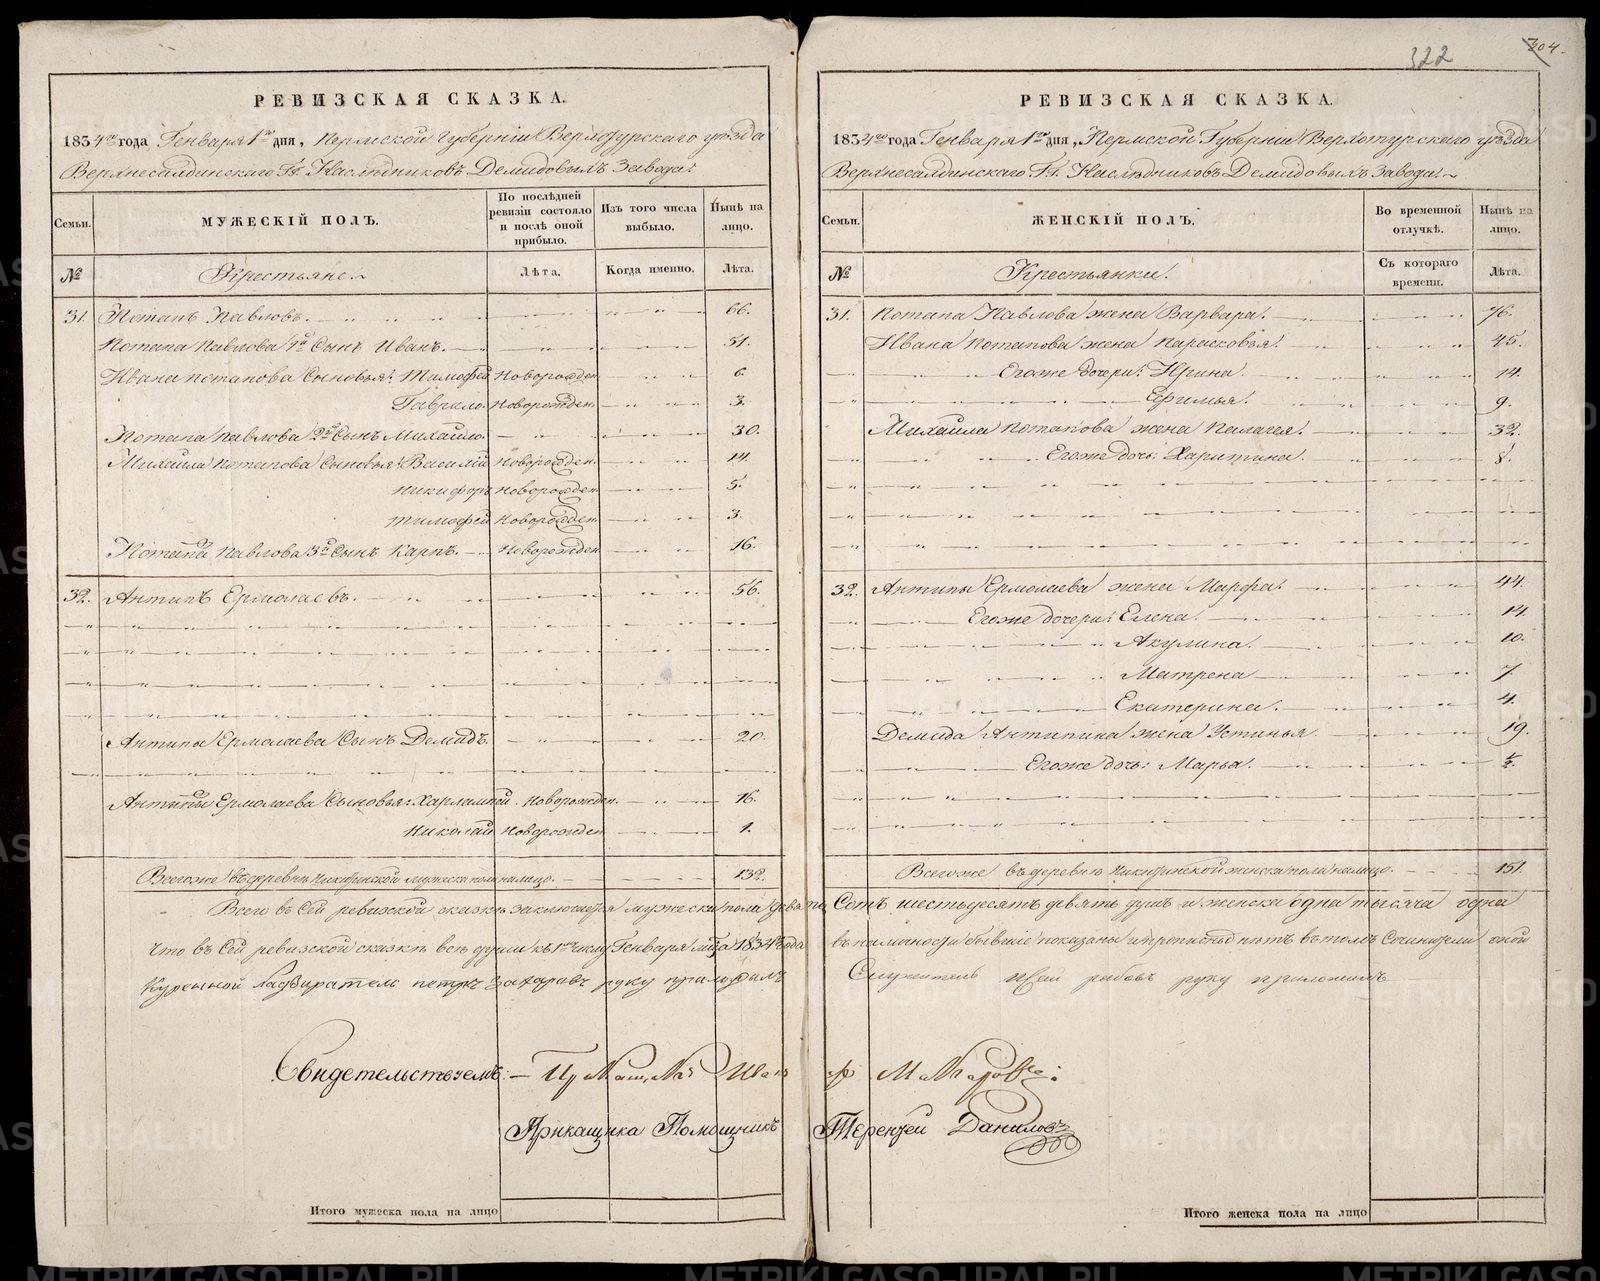 322
304.
РЕВИЗСКАЯ СКАЗКА.
1834го года Генваря 1го дня, Пермской Губернiи Верхотурскаго уѣзда
Верхнесалдинскаго Гг. Наслѣдниковъ Демидовыхъ Завода.
Семьи.
МУЖЕСКIЙ ПОЛЪ.
По послѣдней ревизiи состояло и послѣ оной прибыло.
Изъ того числа выбыло.
Нынѣ на лицо.
№
Крестьяне.
Лѣта.
Когда именно.
Лѣта.
31. Потапъ Павловъ. 66.
Потапа Павлова 1й Сынъ Иванъ. 51.
Ивана Потапова Сыновья: Тимофей Новорожден. 6.
Гаврило. Новорожден. 3.
Потапа Павлова 2й Сынъ Михайло. 30.
Михайла Потапова Сыновья: Василiй Новорожден. 14.
Никифоръ Новорожден. 5.
Тимофей Новорожден. 3.
Потапа Павлова 3й Сынъ Карпъ. Новорожден. 16.
32. Антипъ Ермолаевъ. 56.
Антипы Ермолаева Сынъ Демидъ. 20.
Антипы Ермолаева Сыновья: Харлампiй. Новорожден. 16.
Николай Новорожден. 1.
Всегоже въ деревнѣ Никитинской мужеска пола налицо. 132.
РЕВИЗСКАЯ СКАЗКА.
1834го года Генваря 1го дня, Пермской Губернiи Верхотурскаго уѣзда
Верхнесалдинскаго Гг. Наслѣдниковъ Демидовыхъ Завода.
Семьи.
ЖЕНСКIЙ ПОЛЪ.
Во временной отлучкѣ.
Нынѣ на лицо.
№
Крестьянки.
Съ котораго времени.
Лѣта.
31. Потапа Павлова жена Варвара. 76.
Ивана Потапова жена Парасковья. 45.
Егоже дочери: Ирина. 14.
Ефимья. 9.
Михайла Потапова жена Палагея. 32.
Егоже дочь: Харитина. 8.
32. Антипы Ермолаева жена Марфа. 44.
Егоже дочери: Елена. 14.
Акулина. 10.
Матрена 7.
Екатерина. 4.
Демида Антипина жена Устинья 19.
Егоже дочь: Марья. ½.
Всегоже въ деревнѣ Никитинской женска пола налицо. 151.
Всего въ Сей ревизской сказкѣ заключается мужеска пола девять Сотъ шестьдесятъ девять душъ и женска одна тысяча одна
Что въ Сей ревизской сказкѣ всѣ души къ 1му числу Генваря мца 1834 года въ наличности бывшiе показаны и прописныхъ нѣтъ в томъ Сочинители оной
Куренной Надзиратель Петръ Захаровъ руку приложилъ Служитель рабовъ руку приложилъ
Свидетельствуемъ: – Прикащикъ Иванъ Макаровъ:
Прикащика Помощникъ Терентей Даниловъ
Итого мужеска пола на лицо
Итого женска пола на лицо
METRIKI.GASO-URAL.RU